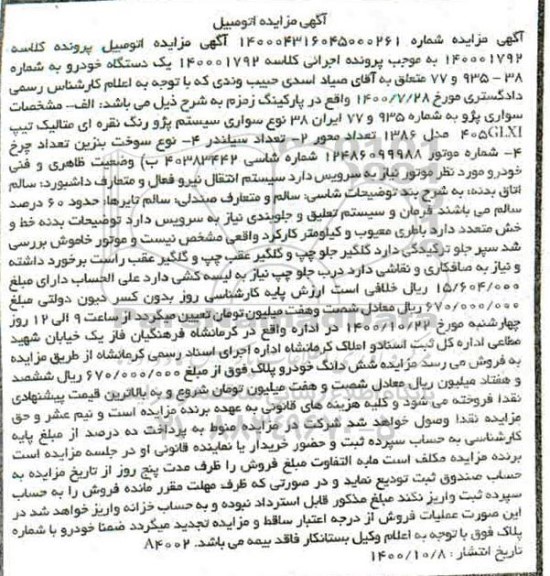 آگهی مزایده اتومبیل
آگهی مزایده شماره ۱۴۰۰۰۴۳۱۶۰۴۵۰۰۰۲۶۱ آگهی مزایده اتومبیل پرونده کلاسه
۱۴۰۰۰۱۷۹۲ به موجب پرونده اجرائی کلاسه ۱۴۰۰۰۱۷۹۲ یک دستگاه خودرو به شماره
۳۸ - ۹۳۵ و ۷۷ متعلق به آقای صیاد اسدی حبیب وندی که با توجه به اعلام کارشناس رسمی
دادگستری مورخ ۱۴۰۰/۷/۲۸ واقع در پارکینگ زمزم به شرح ذیل می باشد: الف- مشخصات
سواری پژو به شماره ۹۳۵ و ۷۷ ایران ۳۸ نوع سواری سیستم پژو رنگ نقره ای متالیک تیپ
۴۰۵GLXI مدل ۱۳۸۶ تعداد محور ۲- تعداد سیلندر ۴- نوع سوخت بنزین تعداد چرخ
۴- شماره موتور ۱۲۴۸۶۰۹۹۹۸۸ شماره شاسی ۴۰۳۸۳۴۴۲ ب) وضعیت ظاهری و فنی
خودرو مورد نظر موتور نیاز به سرویس دارد سیستم انتقال نیرو فعال و متعارف داشبورد: سالم
اتاق بدنه: به شرح بند توضیحات شاسی: سالم و متعارف صندلی: سالم تایرها: حدود ۶۰ درصد
سالم می باشند فرمان و سیستم تعلیق و جلوبندی نیاز به سرویس دارد توضیحات بدنه خط و
خش متعدد دارد باطری معیوب و کیلومتر کارکرد واقعی مشخص نیست و موتور خاموش بررسی
شد سپر جلو ترکیدگی دارد گلگیر جلو چپ و گلگیر عقب چپ و گلگیر عقب راست برخورد داشته
و نیاز به صافکاری و نقاشی دارد درب جلو چپ نیاز به لیسه کشی دارد علی الحساب دارای مبلغ
۱۵/۶۰۴/۰۰۰ ریال خلافی است ارزش پایه کارشناسی روز بدون کسر دیون دولتی مبلغ
۶۷۰/۰۰۰/۰۰۰ ریال معادل شصت وهفت میلیون تومان تعیین میگردد از ساعت ۹ الی ۱۲ روز
چهارشنبه مورخ ۱۴۰۰/۱۰/۲۲ در اداره واقع در کرمانشاه فرهنگیان فاز یک خیابان شهید
مطاعی اداره کل ثبت اسنادو املاک کرمانشاه اداره اجرای اسناد رسمی کرمانشاه از طریق مزایده
به فروش می رسد مزایده شش دانگ خودرو پلاک فوق از مبلغ ۶۷۰/۰۰۰/۰۰۰ ریال ششصد
و هفتاد میلیون ریال معادل شصت و هفت میلیون تومان شروع و به بالاترین قیمت پیشنهادی
نقدا فروخته می شود و کلیه هزینه های قانونی به عهده برنده مزایده است و نیم عشر و حق
مزایده نقدا وصول خواهد شد شرکت در مزایده منوط به پرداخت ده درصد از مبلغ پایه
کارشناسی به حساب سپرده ثبت و حضور خریدار یا نماینده قانونی او در جلسه مزایده است
برنده مزایده مکلف است مابه التفاوت مبلغ فروش را ظرف مدت پنج روز از تاریخ مزایده به
حساب صندوق ثبت تودیع نماید و در صورتی که ظرف مهلت مقرر مانده فروش را به حساب
سپرده ثبت واریز نکند مبلغ مذکور قابل استرداد نبوده و به حساب خزانه واریز خواهد شد در
این صورت عملیات فروش از درجه اعتبار ساقط و مزایده تجدید میگردد ضمنا خودرو با شماره
پلاک فوق با توجه به اعلام وکیل بستانکار فاقد بیمه می باشد. ۸۴۰۰۲
تاریخ انتشار : ۱۴۰۰/۱۰/۸